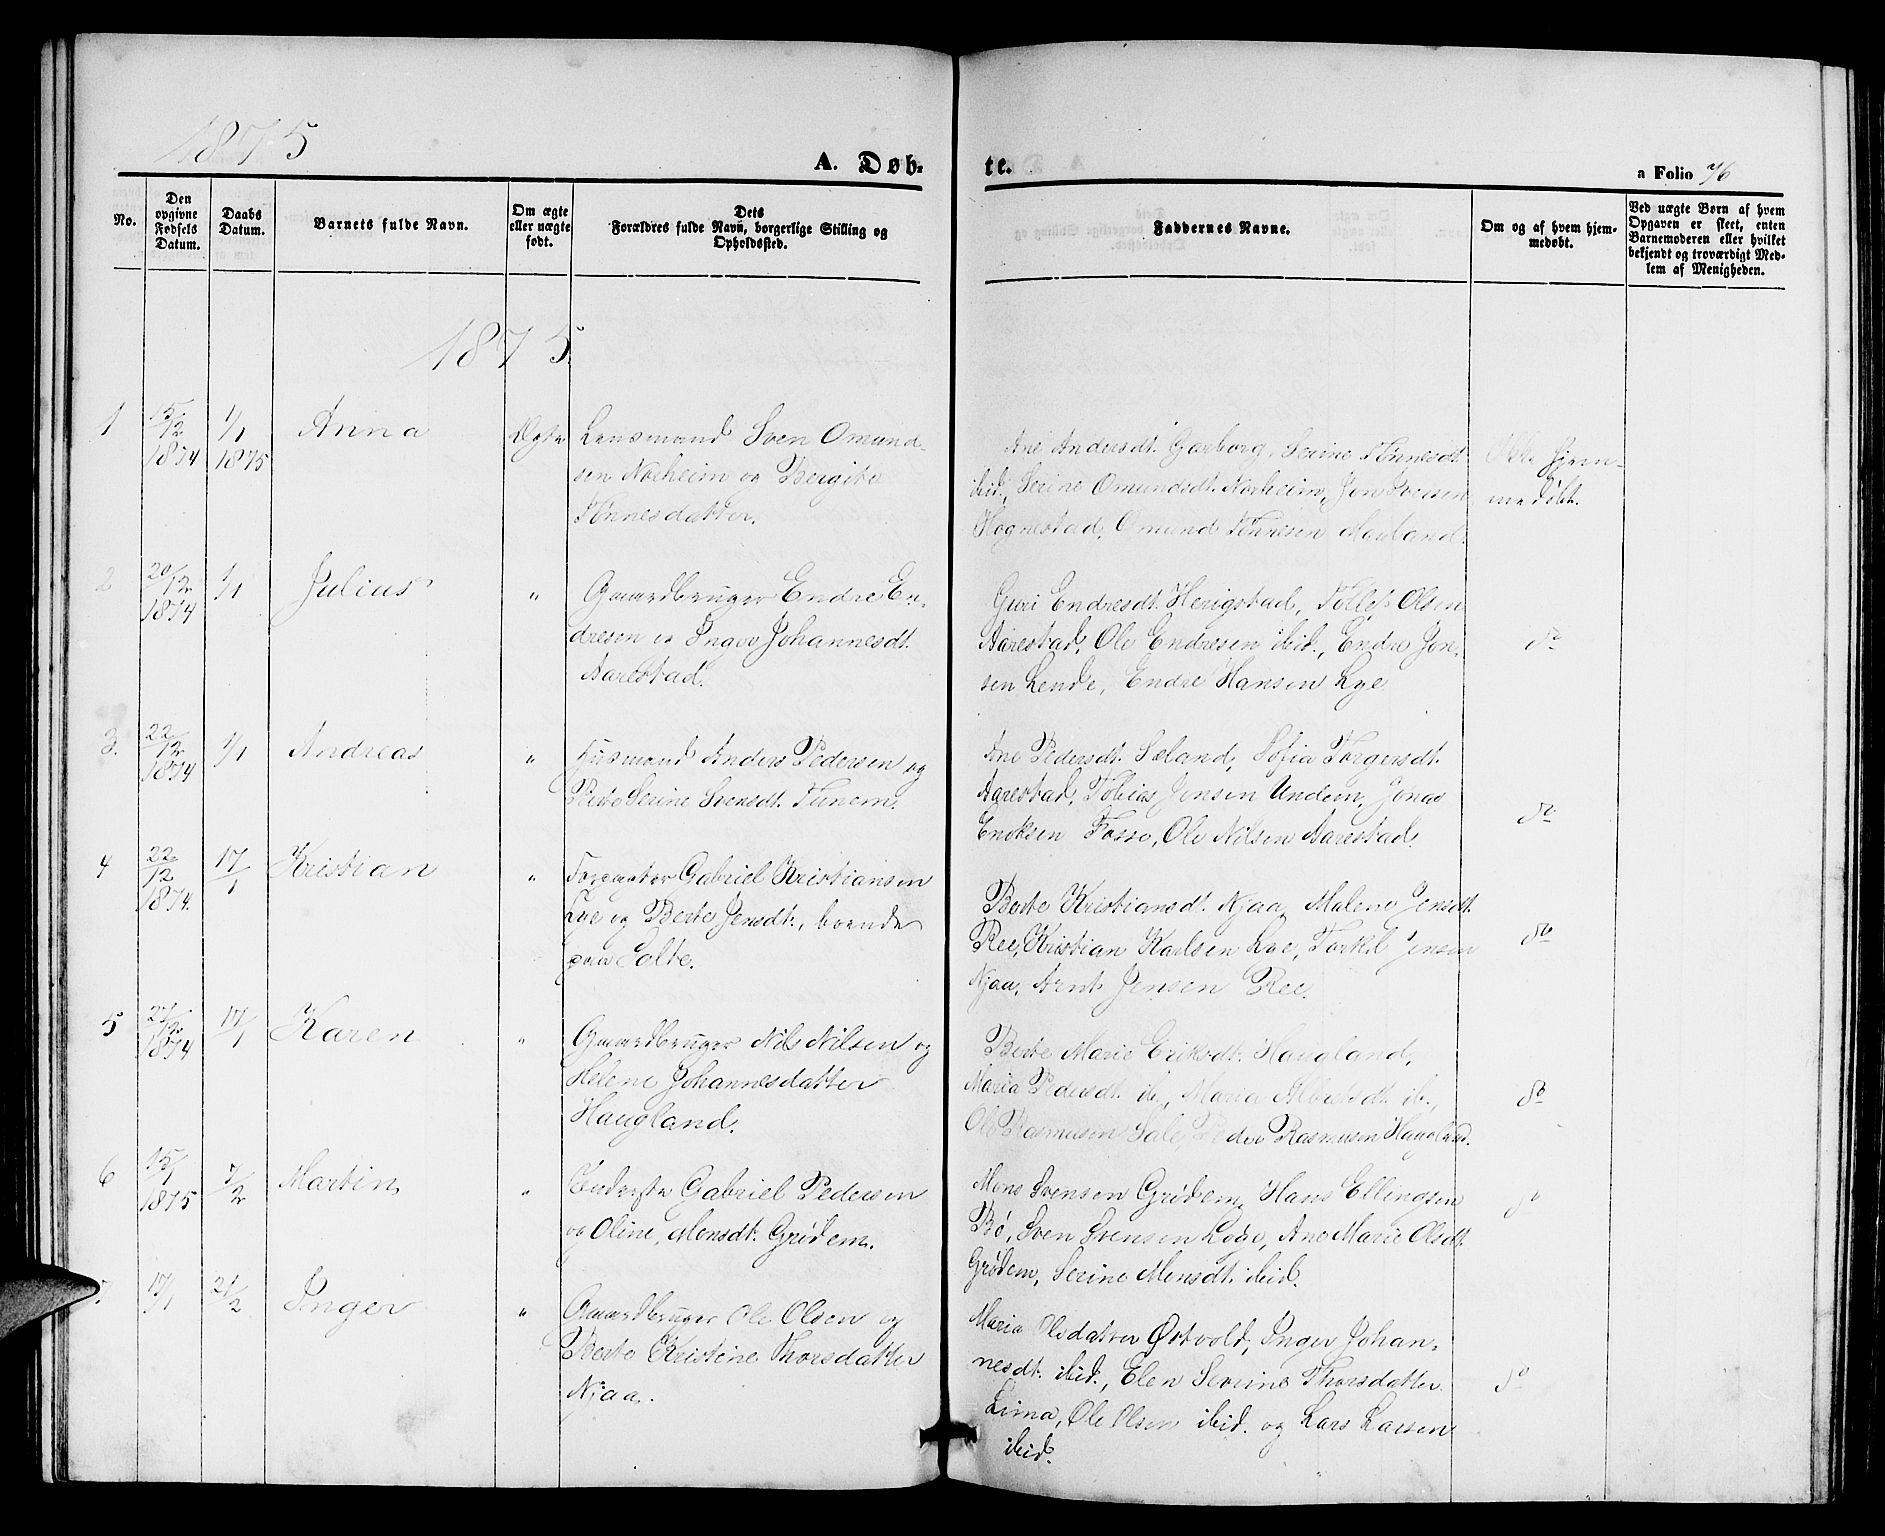 1875
A. Døb-
te.
a Folio 76
No.
Den opgivne Fødsels Datum.
Daabs Datum.
Barnets fulde Navn.
Om ægte eller uægte født.
Dets Forældres fulde Navn, borgerlige Stilling og Opholdssted.
Faddernes Navne.
Om og af hvem hjemmedøbt.
Ved uægte Børn af hvem Opgaven er skeet, enten Barnemoderen eller hvilket bekjendt og troværdigt Medlem af Menigheden.
1875.
1 15/12 1874 1/1 1875 Anna Ægte Lensmand Sven Omund-
sen Norheim og Bergite
Tønnesdatter.
Ane Andersdt. Garborg, Serine Tønnesdt.
ibid., Serine Omundsdt. Norheim, Jon Svensen
Hognestad, Omund Tønnesen Mauland.
Ikke hjem-
medøbt.
2 20/12 1874 1/1 Julius " Gaardbruger Endre En-
dresen og Inger Johannesdt.
Aarestad.
Guri Endresdt. Herigstad, Tollef Olsen
Aarestad, Ole Endresen ibid., Endre Jon-
sen Lende, Endre Hansen Lye
do
3. 22/12 1874 1/1 Andreas " Husmand Anders Pedersen og
Berte Serine Svensdt. Tunem.
Ane Pedersdt. Søland, Sofia Torgersdt.
Aarestad, Tobias Jensen Undem, Jonas
Eriksen Fosse, Ole Nilsen Aarestad.
do
4 22/12 1874. 17/1 Kristian " Forpagter Gabriel Kristiansen
Lye og Berte Jensdt., boende
paa Salte.
Berte Kristiansdt. Njaa, Malene Jensdt.
Ree, Kristian Karlsen Lye, Torkel Jensen
Njaa, Arnt Jensen Ree.
do
5 27/12 1874 17/1 Karen " Gaardbruger Nils Nilsen og
Helene Johannesdatter
Haugland.
Berte Marie Eriksdt. Haugland,
Maria Pedersdt. ib., Maria Albertsdt. ib.,
Ole Rasmusen Sale, Peder Rasmusen Haugland.
do
6 15/1 1875 7/2 Martin " Inderste Gabriel Pedersen
og Oline Monsdt. Grødem.
Mons Svensen Grødem, Hans Ellingsen
Bø, Sven Svensen Løge, Ane Marie Olsdt.
Grødem, Serine Monsdt. ibid.
do
7. 17/1 21/2 Inger " Gaardbruger Ole Olsen og
Berte Kristine Thorsdatter
Njaa.
Maria Olsdatter Østvold, Inger Johan-
nesdt. ibid., Elen Serine Thorsdatter
Lima, Ole Olsen ibid. og Lars Larsen
ibid.
do